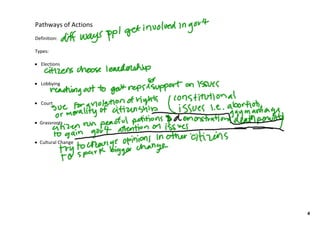 Pathways of Actions
Definition: diff ways ppl get involved in gov4
Types:
• Elections
citizens choose leadership
• Lobbying
reaching out to govt reps for support on issues
• Court
sue for violation of rights / constitutional
or morality of citizenship issues i.e. abortion,
gay marriage,
death penalty
• Grassroots
citizen run peaceful petitions & demonstrations
to gain gov4 attention on issues
• Cultural Change
try to change opinions in other citizens
to spark bigger change
4